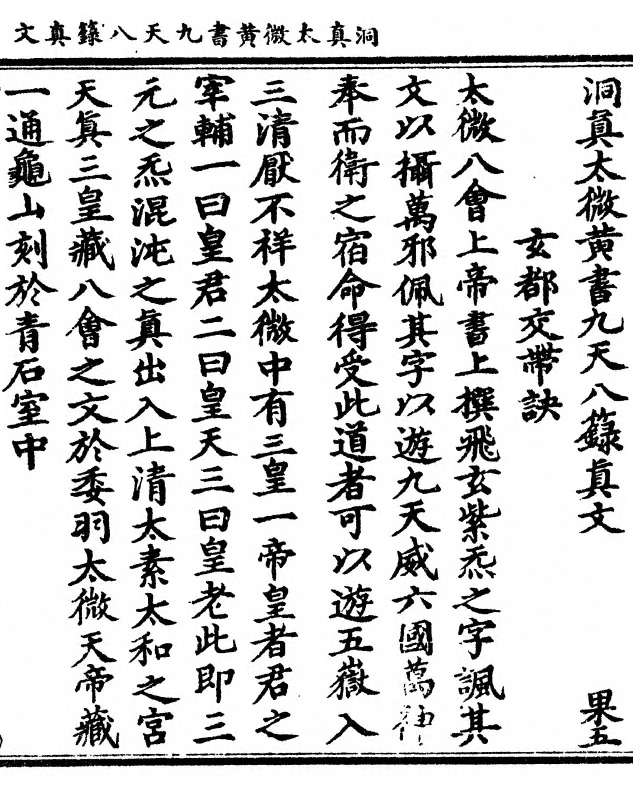 洞真太微黄書九天八籙真文
洞眞太微黄書九天八籙眞文 果五
玄都交帶訣
太微八會上帝書上撰飛玄紫炁之字諷其
文以攝萬邪佩其字以遊九天威六國萬神
奉而衛之宿命得受此道者可以遊五嶽入
三清厭不祥太微中有三皇一帝皇者君之
宰輔一曰皇君二曰皇天三曰皇老此即三
元之炁混沌之眞出入上清太素太和之宮
天眞三皇藏八會之文於委羽太微天帝藏
一通龜山刻於青石室中